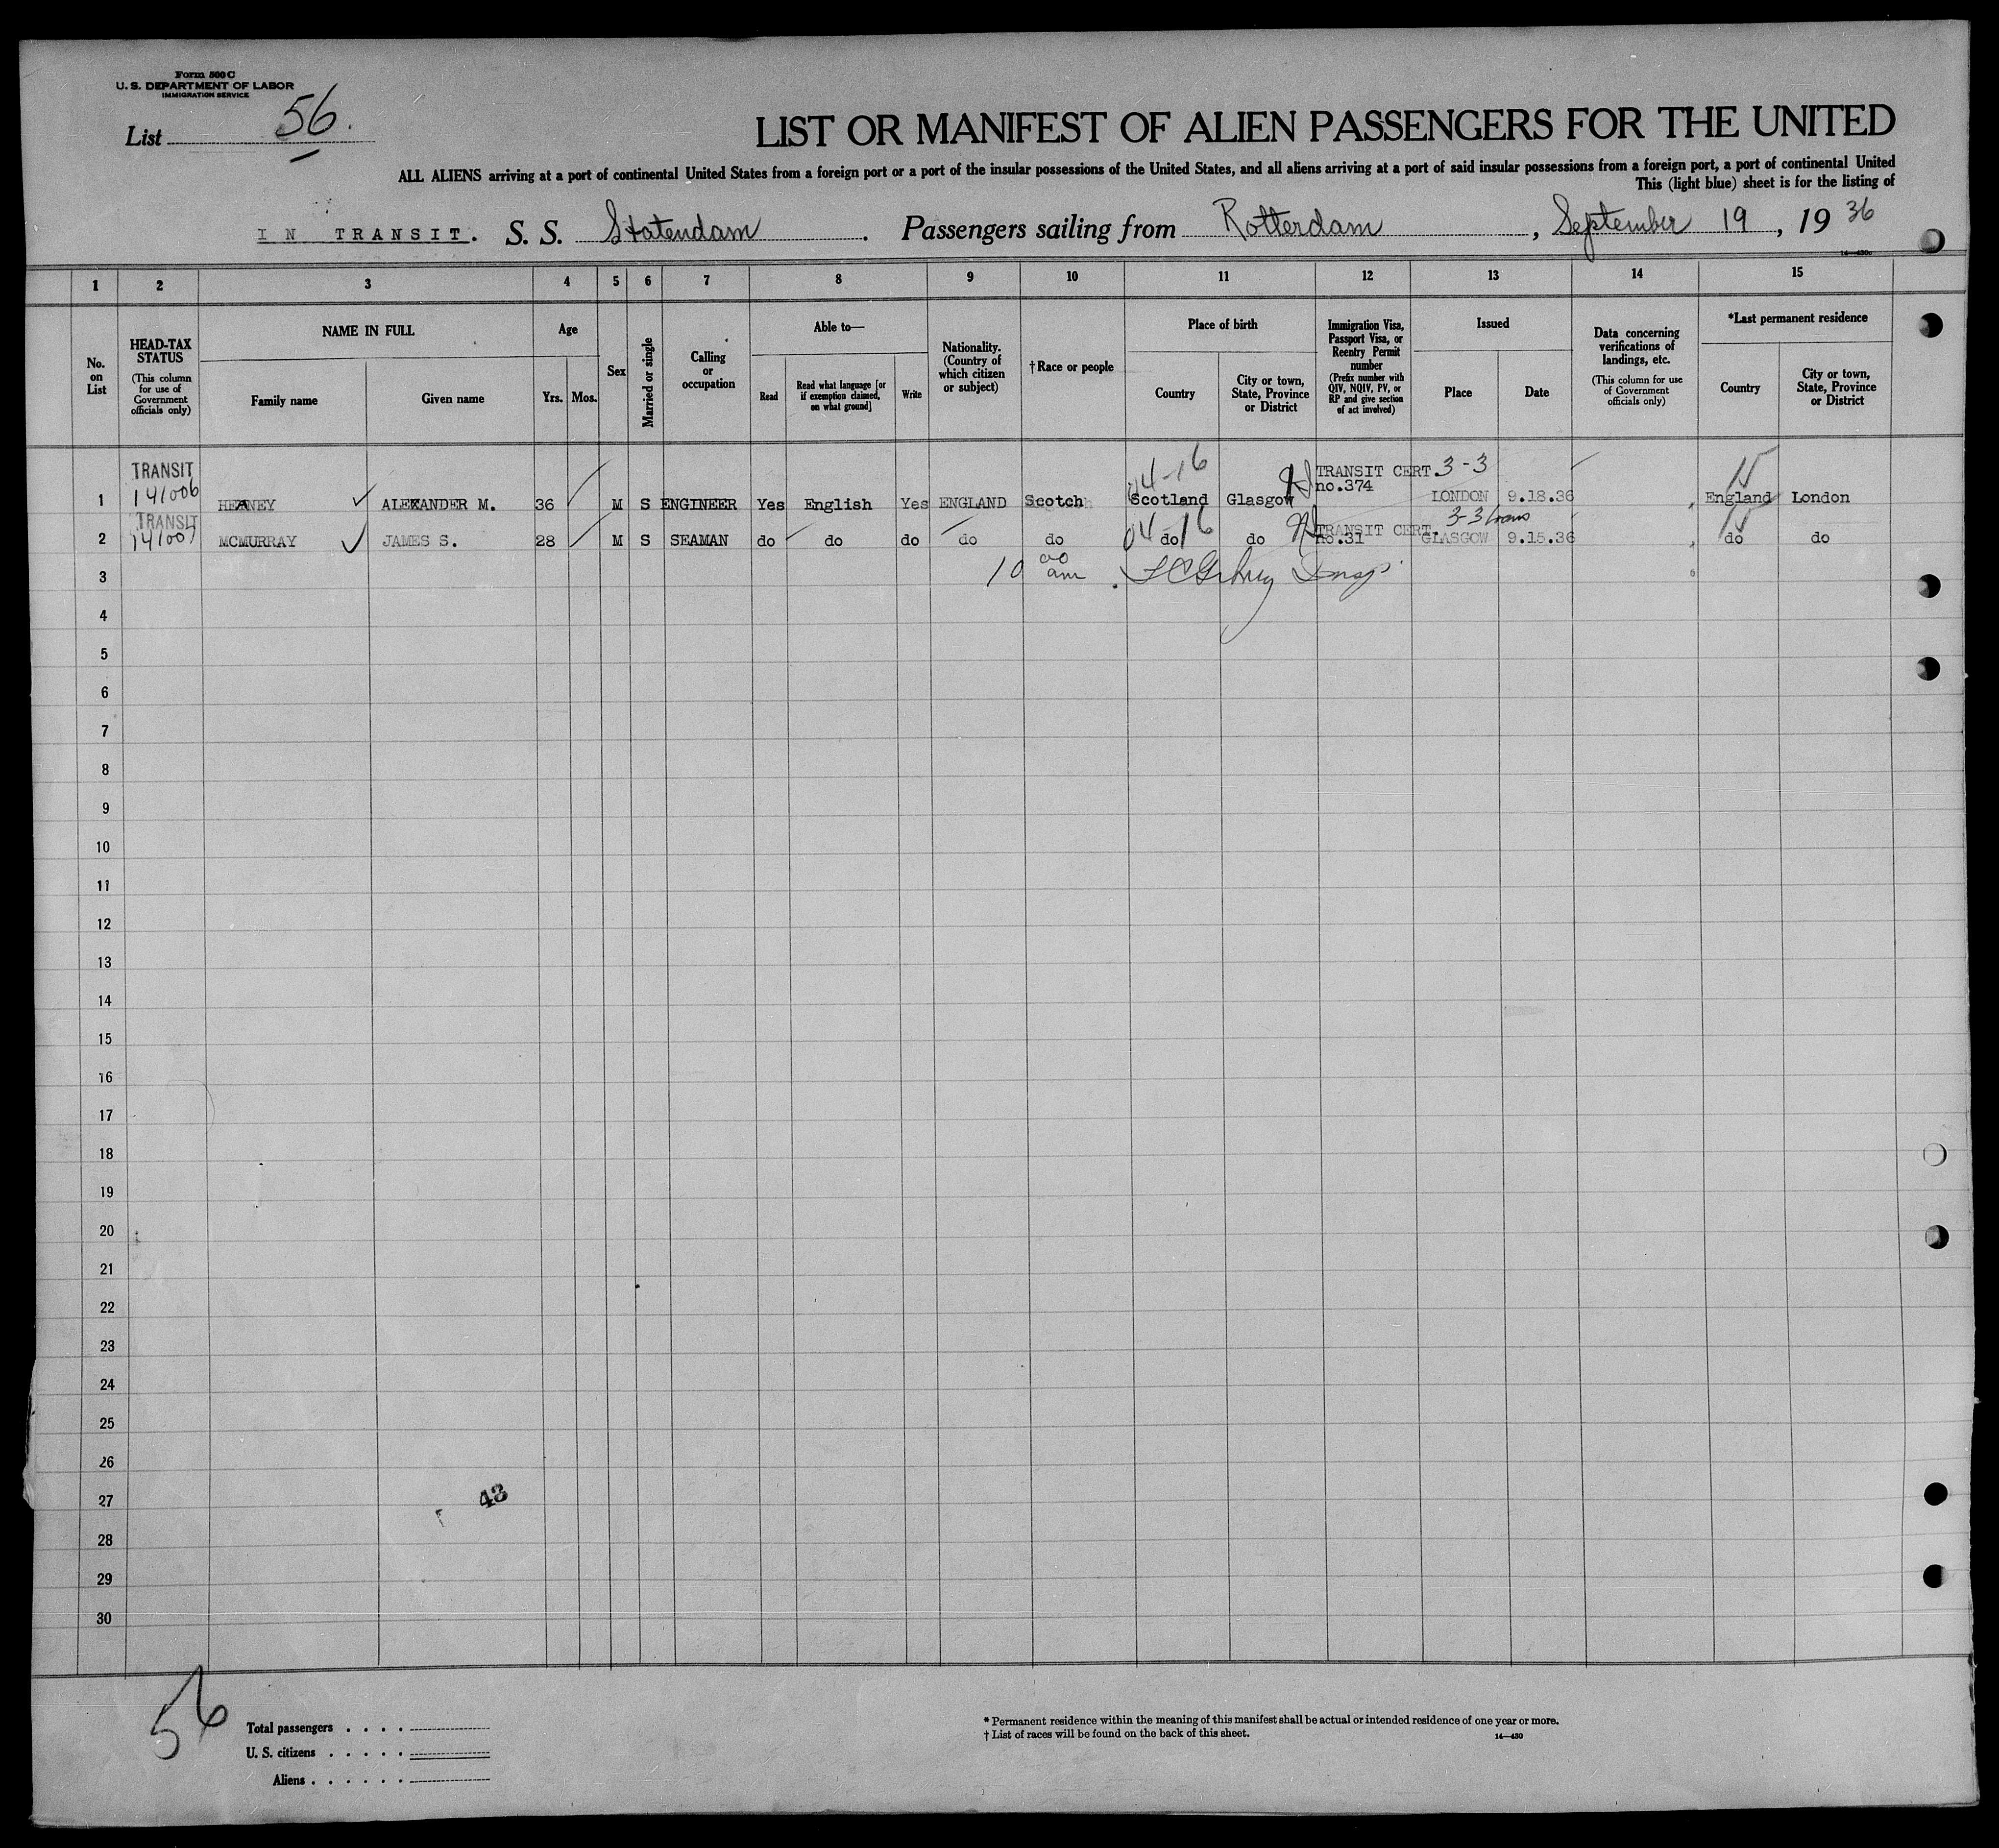 Form 500 C
U. S. DEPARTMENT OF LABOR
IMMIGRATION SERVICE
List 56.
LIST OR MANIFEST OF ALIEN PASSENGERS FOR THE UNITED
ALL ALIENS arriving at a port of continental United States from a foreign port or a port of the insular possessions of the United States, and all aliens arriving at a port of said insular possessions from a foreign port, a port of continental United
This (light blue) sheet is for the listing of
IN TRANSIT. S. S. Statendam . Passengers sailing from Rotterdam , September 19 , 19 36
1 2 3 4 5 6 7 8 9 10 11 12 13 14 15
No. on List
HEAD-TAX STATUS
(This column for use of Government officials only)
NAME IN FULL
Family name
Given name
Age
Yrs. Mos.
Sex
Married or single
Calling or occupation
Able to—
Read
Read what language [or if exemption claimed, on what ground]
Write
Nationality. (Country of which citizen or subject)
† Race or people
Place of birth
Country
City or town, State, Province or District
Immigration Visa, Passport Visa, or Reentry Permit number
(Prefix number with QIV, NQIV, PV, or RP and give section of act involved)
Issued
Place
Date
Data concerning verifications of landings, etc.
(This column for use of Government officials only)
*Last permanent residence
Country
City or town, State, Province or District
TRANSIT 04-16 TRANSIT CERT. 3-3
1 141006 HEANEY ALEXANDER M. 36 M S ENGINEER Yes English Yes ENGLAND Scotch Scotland Glasgow no.374 LONDON 9.18.36 England London
TRANSIT 04-16 TRANSIT CERT. 3-3 trans
2 141007 MCMURRAY JAMES S. 28 M S SEAMAN do do do do do do do no.31 GLASGOW 9.15.36 do do
3 10 00 am Insp.
4
5
6
7
8
9
10
11
12
13
14
15
16
17
18
19
20
21
22
23
24
25
26
27
28
29
30
43
56
Total passengers . . . .
U. S. citizens . . . . .
Aliens . . . . . .
* Permanent residence within the meaning of this manifest shall be actual or intended residence of one year or more.
† List of races will be found on the back of this sheet.
14—430